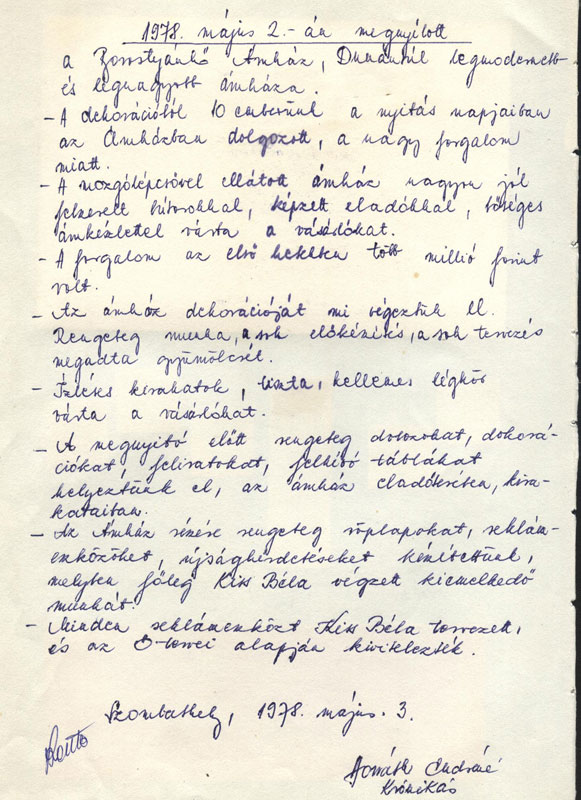 1978. május 2.-án megnyílott
a Borostyánkő Áruház, Dunántúl legmodernebb
és legnagyobb áruháza.
- A dekorációtól 10 emberünk a nyitás napjaiban
az Áruházban dolgozott, a nagy forgalom
miatt.
- A mozgólépcsővel ellátott áruház nagyon jól
felszerelt bútorokkal, képzett eladókkal, bőséges
árukészlettel várta a vásárlókat.
- A forgalom az első hetekben több millió forint
volt.
- Az áruház dekorációját mi végeztük el.
Rengeteg munka, a sok előkészítés, a sok tervezés
megadta gyümölcsét.
- Ízléses kirakatok, tiszta, kellemes légkör
várta a vásárlókat.
- A megnyitó előtt rengeteg dobozokat, dekorá-
ciókat, feliratokat, felhívó táblákat
helyeztünk el, az áruház eladóterében, kira-
kataiban.
- Az Áruház részére rengeteg röplapokat, reklám-
eszközöket, újsághirdetéseket készítettünk,
melyben főleg Kiss Béla végzett kiemelkedő
munkát.
- Minden reklámeszközt Kiss Béla tervezett,
és az Ő tervei alapján kivitelezték.
Szombathely, 1978. május. 3.
Horváth Endréné
Krónikás